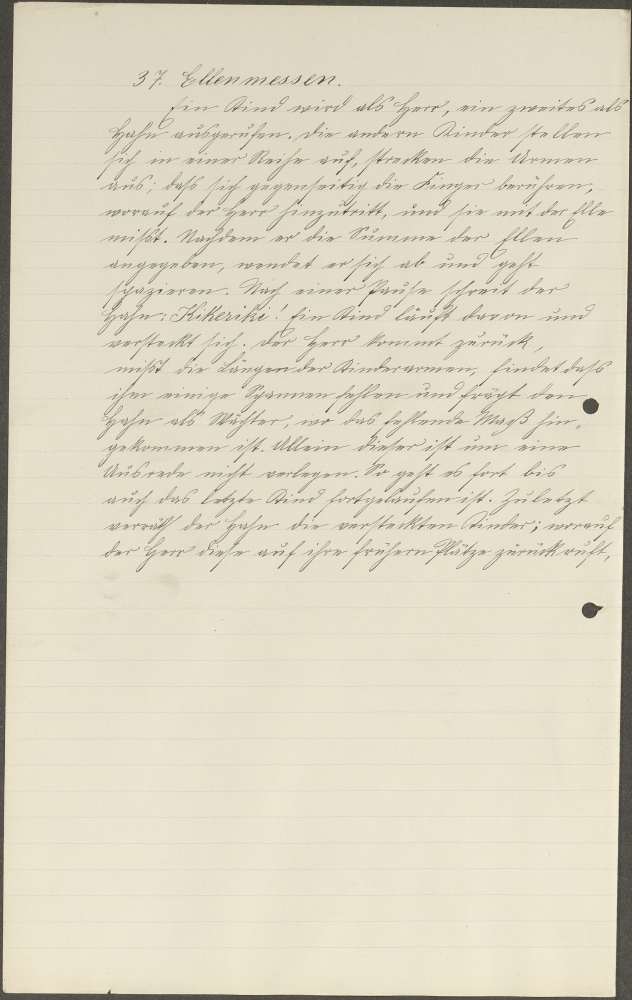 37. Ellenmessen.
Ein Kind wird als Herr, ein zweites als
Hahn ausgerufen. Die andern Kinder stellen
sich in einer Reihe auf, strecken die Armen
aus; daß sich gegenseitig die Finger berühren,
worauf der Herr hinzutritt, und sie mit der Elle
mißt. Nachdem er die Summe der Ellen
angegeben, wendet er sich ab und geht
spazieren. Nach einer Pause schreit der
Hahn: Kikeriki! Ein Kind läuft davon und
versteckt sich. Der Herr kommt zurück,
mißt die Längen der Kinderarmen, findet daß
ihm einige Spannen fehlen und frägt den
Hahn als Wächter, wo das fehlende Maß hin-
gekommen ist. Allein dieser ist um eine
Ausrede nicht verlegen. So geht es fort bis
auch das letzte Kind fortgelaufen ist. Zuletzt
verräth der Hahn die versteckten Kinder; worauf
der Herr diese auf ihre frühern Plätze zurück ruft,